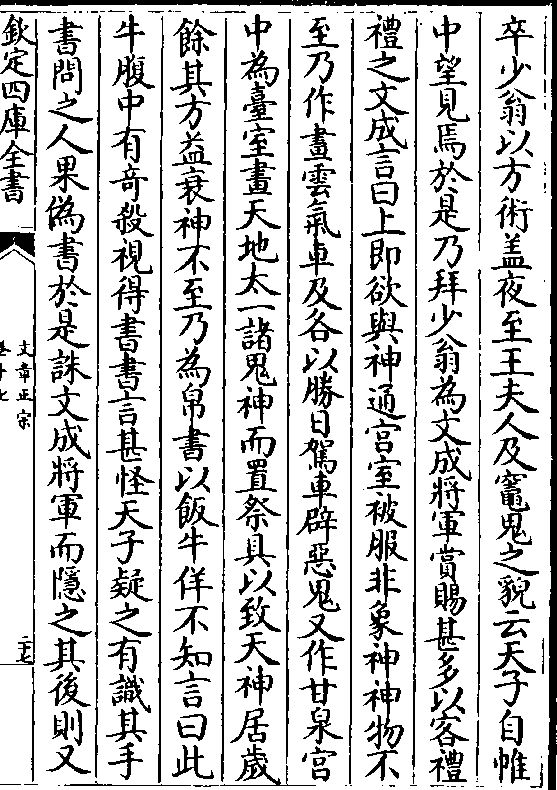 卒少翁以方術盖夜至王夫人及竈鬼之貌云天子自帷
中望見焉於是乃拜少翁為文成將軍賞賜甚多以客禮
禮之文成言曰上即欲與神通宫室被服非象神神物不
至乃作畫雲氣車及各以勝日駕車辟惡鬼又作甘泉宫
中為臺室畫天地太一諸鬼神而置祭具以致天神居歲
餘其方益衰神不至乃為帛書以飯牛佯不知言曰此
牛腹中有竒殺視得書書言甚怪天子疑之有識其手
書問之人果偽書於是誅文成將軍而隱之其後則又
欽定四庫全書
文章正宗
二十七